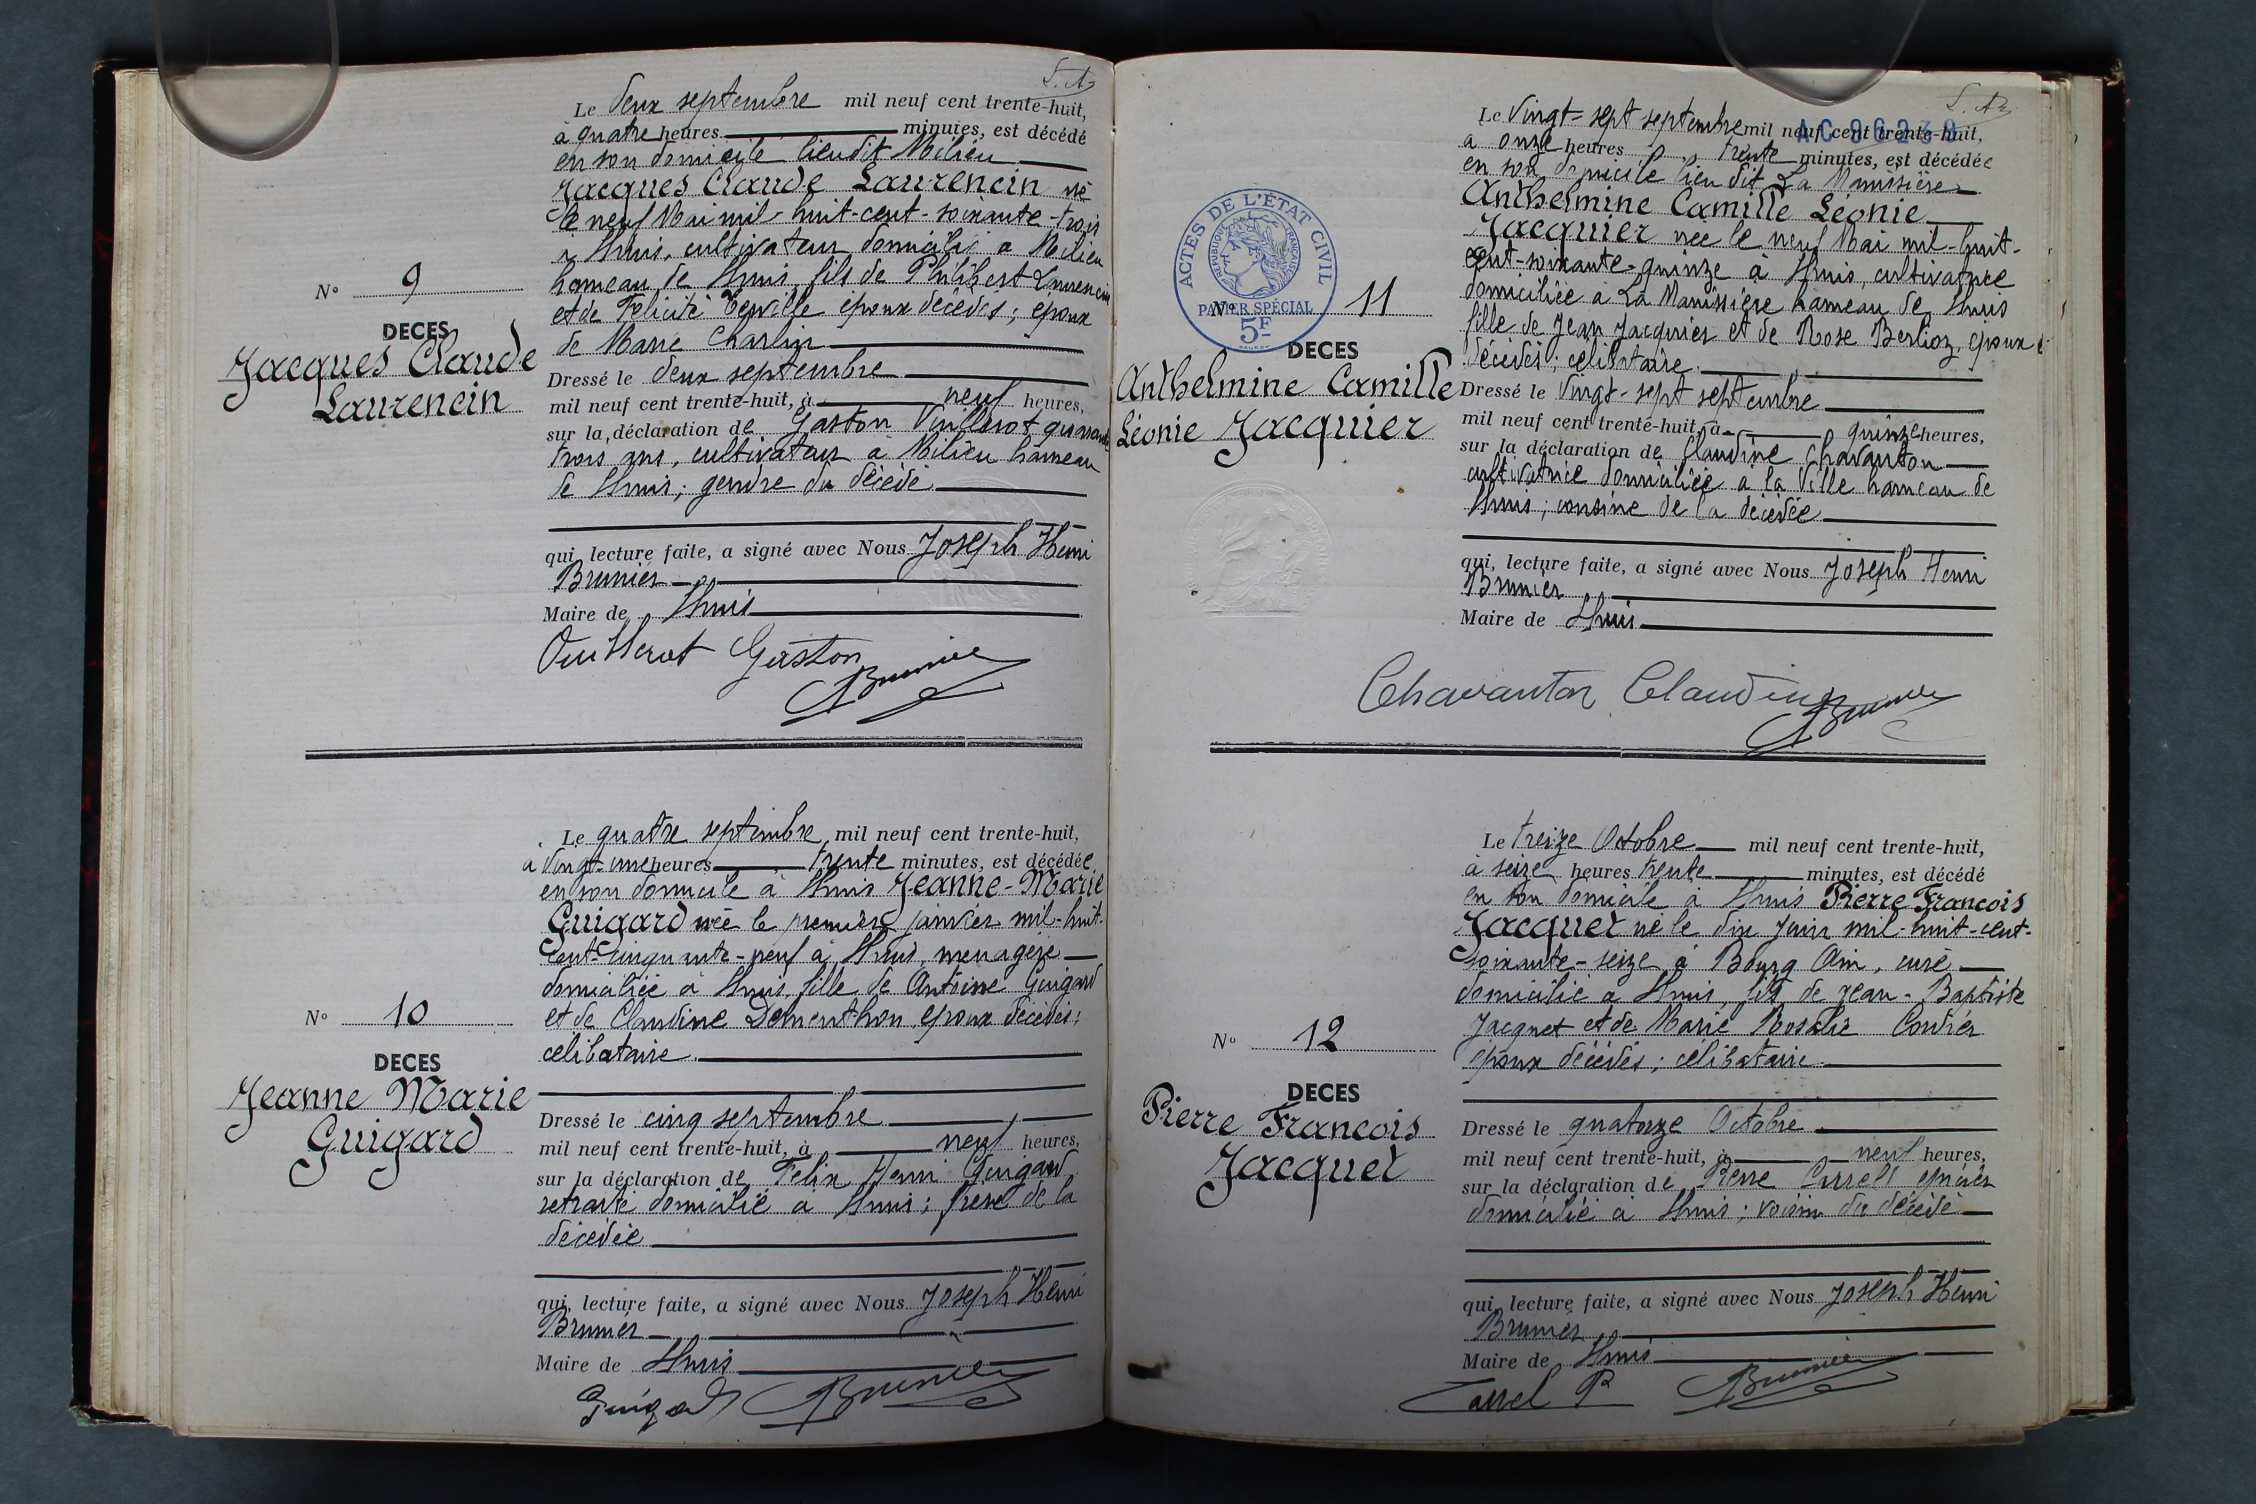 Le deux septembre mil neuf cent trente-huit,
à quatre heures minutes, est décédé
en son domicile lieudit Milieu
Jacques Claude Laurencin né
le neuf Mai mil-huit-cent-soixante-trois
à Lhuis, cultivateur domicilié à Milieu
hameau de Lhuis, fils de Philibert Laurencin
et de Félicité époux décédés; époux
de Marie Charlin
N° 9
DECES
Jacques Claude
Laurencin
Dressé le deux septembre
mil neuf cent trente-huit, à neuf heures,
sur la déclaration de Gaston Vuillerot quarante
trois ans, cultivateur à Milieu hameau
de Lhuis; gendre du décédé
qui, lecture faite, a signé avec Nous Joseph Henri
Brunier
Maire de Lhuis
Vuillerot Gaston
Brunier
Le quatre septembre mil neuf cent trente-huit,
à vingt-une heures trente minutes, est décédée
en son domicile à Lhuis Jeanne-Marie
Guigard née le premier janvier mil-huit-
cent-cinquante-neuf à Lhuis, ménagère
domiciliée à Lhuis, fille de Antoine Guigard
et de Claudine Dementhon époux décédés;
célibataire
N° 10
DECES
Jeanne Marie
Guigard
Dressé le cinq septembre
mil neuf cent trente-huit, à neuf heures,
sur la déclaration de Félix Henri Guigard
retraité domicilié à Lhuis; frère de la
décédée
qui, lecture faite, a signé avec Nous Joseph Henri
Brunier
Maire de Lhuis
Guigard Brunier
AC 86239
Le vingt-sept septembre mil neuf cent trente-huit,
à onze heures trente minutes, est décédée
en son domicile lieu dit La Manissière
Anthelmine Camille Léonie
Jacquier née le neuf Mai mil-huit-
cent-soixante-quinze à Lhuis, cultivatrice
domiciliée à La Manissière hameau de Lhuis
fille de Jean Jacquier et de Rose Berlioz, époux
décédés; célibataire
ACTES DE L'ETAT CIVIL
REPUBLIQUE FRANCAISE
PAPIER SPÉCIAL
5F
N° 11
DECES
Anthelmine Camille
Léonie Jacquier
Dressé le vingt-sept septembre
mil neuf cent trente-huit, à quinze heures,
sur la déclaration de Claudine Chavanton
cultivatrice domiciliée à la Ville hameau de
Lhuis; cousine de la décédée
qui, lecture faite, a signé avec Nous Joseph Henri
Brunier
Maire de Lhuis
Chavanton Claudine
Brunier
Le treize Octobre mil neuf cent trente-huit,
à seize heures trente minutes, est décédé
en son domicile à Lhuis Pierre Francois
Jacquet né le dix Juin mil-huit-cent-
soixante-seize à Bourg Ain, curé
domicilié à Lhuis, fils de Jean-Baptiste
Jacquet et de Marie Rosalie Cordier
époux décédés; célibataire
N° 12
DECES
Pierre Francois
Jacquet
Dressé le quatorze Octobre
mil neuf cent trente-huit, à neuf heures,
sur la déclaration de Pierre Carrel épicier
domicilié à Lhuis; voisin du décédé
qui, lecture faite, a signé avec Nous Joseph Henri
Brunier
Maire de Lhuis
Carrel P Brunier